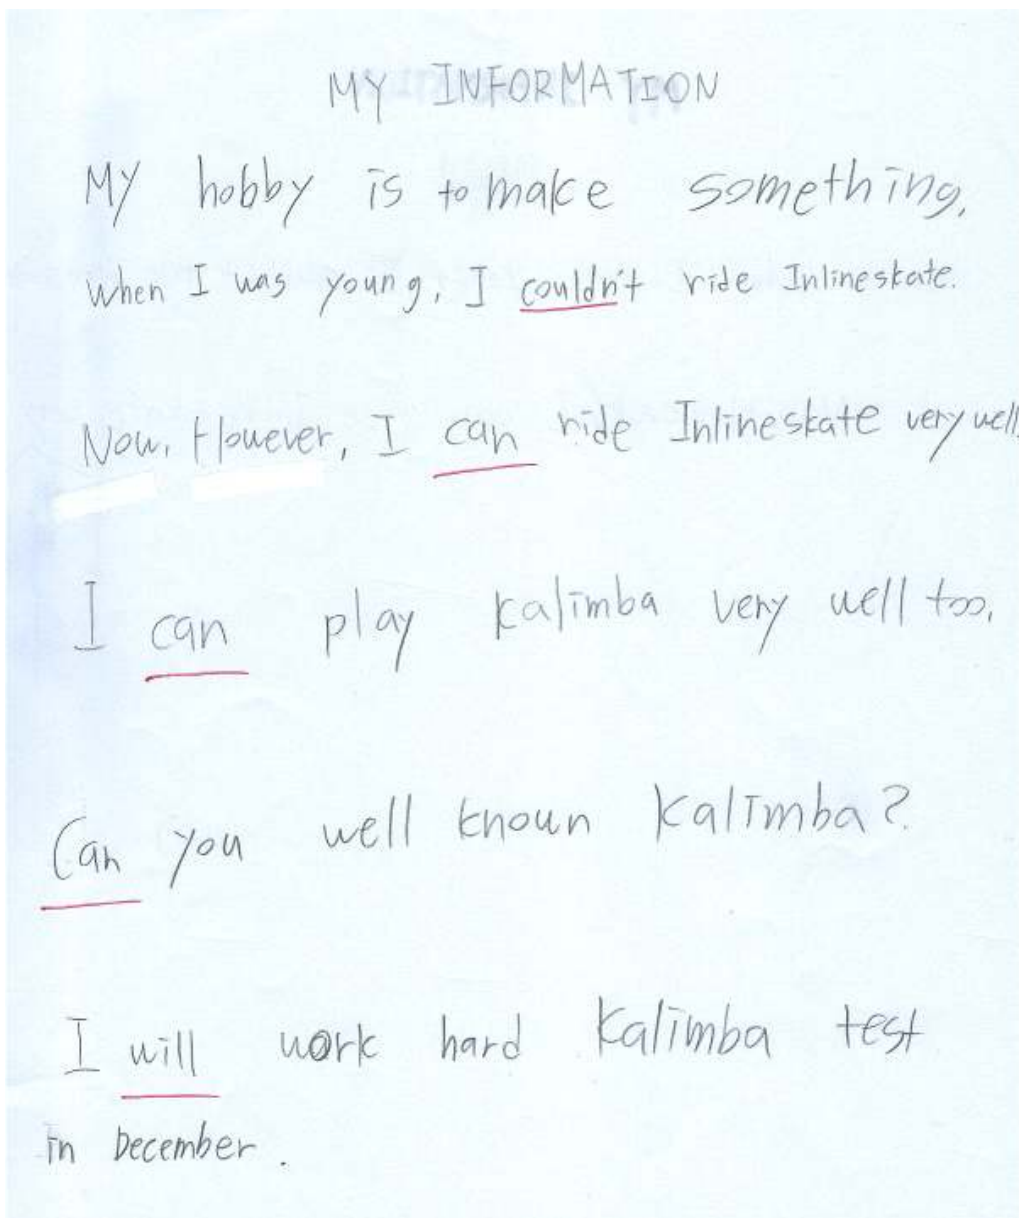 MY INFORMATION
My hobby is to make something.
When I was young, I couldn't ride Inlineskate.
Now, However, I can ride Inlineskate very well.
I can play kalimba very well too.
Can you well known kalimba?
I will work hard Kalimba test
in December.